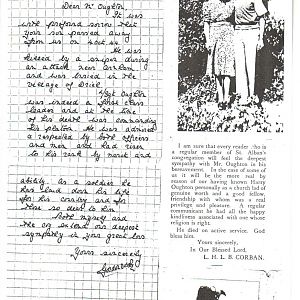 Dear Mr Oughton
It was
with profound sorrow that
your son passed away
from us on Oct
He was
killed by a sniper during
an attack near
and was buried in the
village of
Sgt Oughton
was indeed a first class
leader and at the time
of his death was commanding
his platoon. He was admired
& respected by both officers
and men and had risen
to his rank by merit and
ability. As a soldier he
has laid down his life
for his country and for
those so dear to him
Both myself and
the Co extend our deepest
sympathy in your great loss
Yours sincerely
I am sure that every reader who is
a regular member of St. Alban's
congregation will feel the deepest
sympathy with Mr. Oughton in his
bereavement. In the case of some of
us it will be the more real by
reason of our having known Harry
Oughton personally as a church lad of
genuine worth and a good fellow,
friendship with whom was a real
privilege and pleasure. A regular
communicant he had all the happy
kindliness associated with one whose
religion is right.
He died on active service. God
bless him.
Yours sincerely,
In Our Blessed Lord,
L. H. L. B. CORBAN.